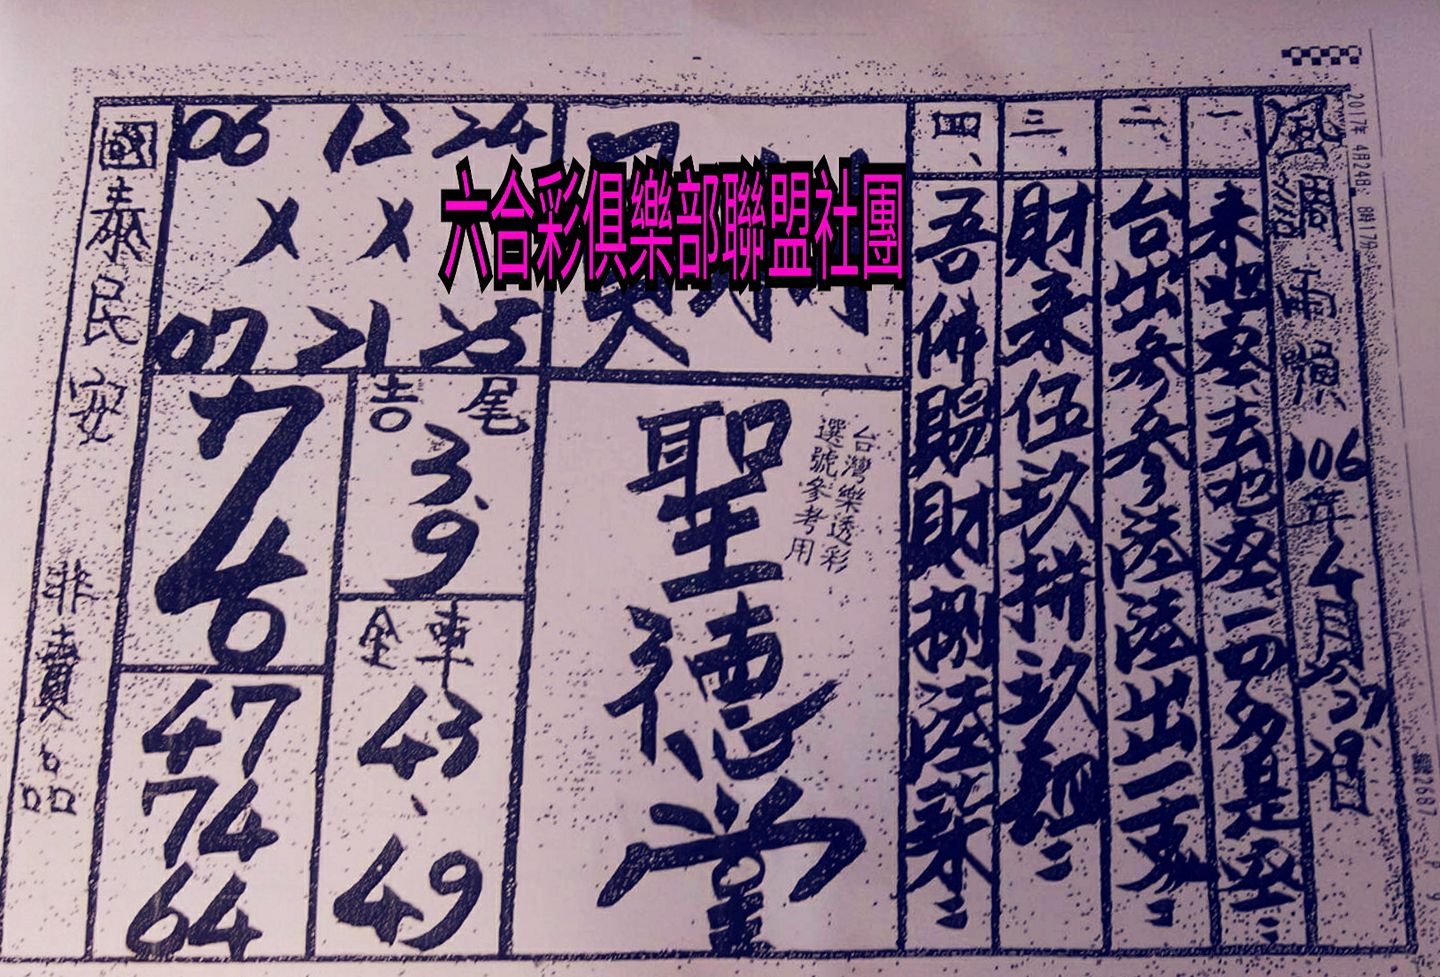 風調雨順 106年4月25.27.29日
一、來也空去也空一切多是空..
二、台出參參陸陸出一支..
三、財來伍玖拼玖
四、吾佛賜財捌陸柒..
六合彩俱樂部聯盟社團
台灣樂透彩
選號參考用
聖德堂
06 12 24
X X
07 21 25
吉尾
3.9
全車
43.49
7
4
6
47
74
64
國泰民安 非賣品
2017年 4月24日 8時17分